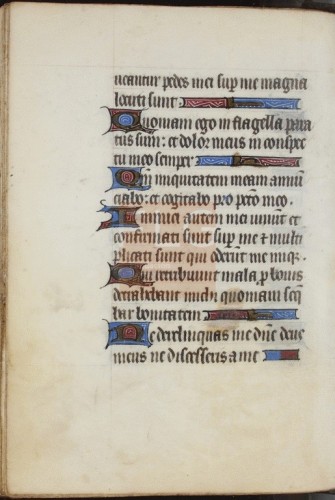 ueantur pedes mei sup me magna
locuti sunt
Quoniam ego in flagella para
tus sum : et dolor meus in conspec
tu meo semper
Qm iniquitatem meam annun
ciabo : et cogitabo pro pctō meo .
Inimici autem mei uiuunt et
confirmati sunt sup me ⁊ multi
plicati sunt qui oderūt me iniq .
Qui retribuunt mala p bonis
detrahebant michi quoniam seq
bar bonitatem
Ne derelinquas me dn̄e deus
meus ne discesseris a me